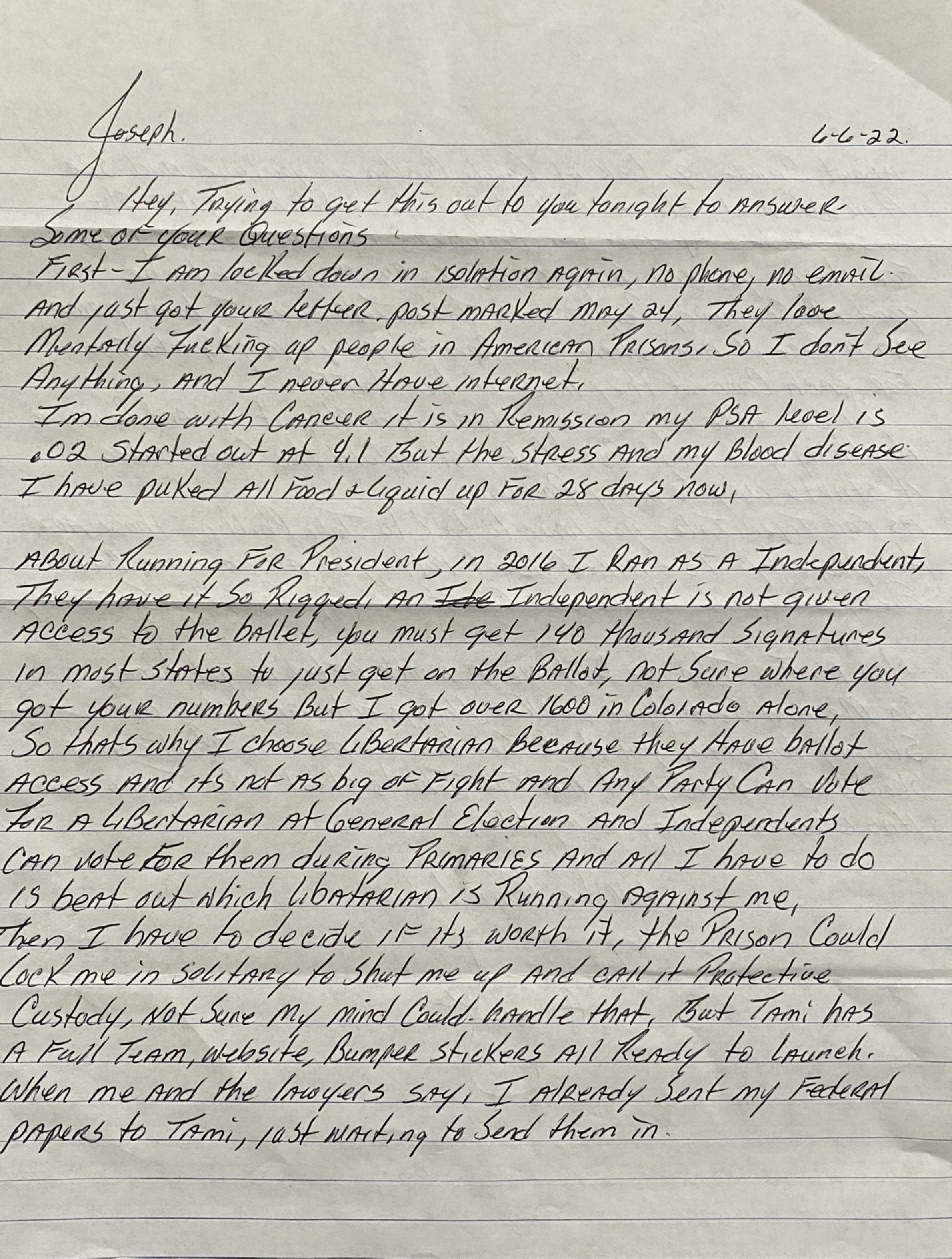 Joseph.
6-6-22.
Hey, Trying to get this out to you tonight to Answer
Some of your Questions
First - I am locked down in isolation Again, no phone, no email.
And just got your letter. post marked may 24, They love
Mentally Fucking up people in American Prisons, So I don't See
Anything, And I never Have internet,
Im done with Cancer it is in Remission my PSA level is
.02 Started out At 4.1 But the Stress And my Blood disease
I have puked All Food + Liquid up For 28 days now,
About Running For President, in 2016 I Ran As A Independent,
They have it So Rigged, An Ide Independent is not given
Access to the ballet, you must get 140 thousand Signatures
in most States to just get on the Ballot, not Sure where you
got your numbers But I got over 1600 in Colorado Alone,
So thats why I choose Libertarian Because they Have ballot
Access And its not As big of Fight And Any Party Can Vote
For A Libertarian At General Election And Independents
CAN vote For them during Primaries And All I have to do
is beat out which Libatarian is Running Against me,
Then I have to decide if its worth it, the Prison Could
Lock me in Solitary to Shut me up And call it Protective
Custody, Not Sure My mind Could handle that, But Tami has
A Full Team, website, Bumper Stickers All Ready to Launch.
When me And the lawyers say, I Already Sent my Federal
papers to Tami, just waiting to Send them in.